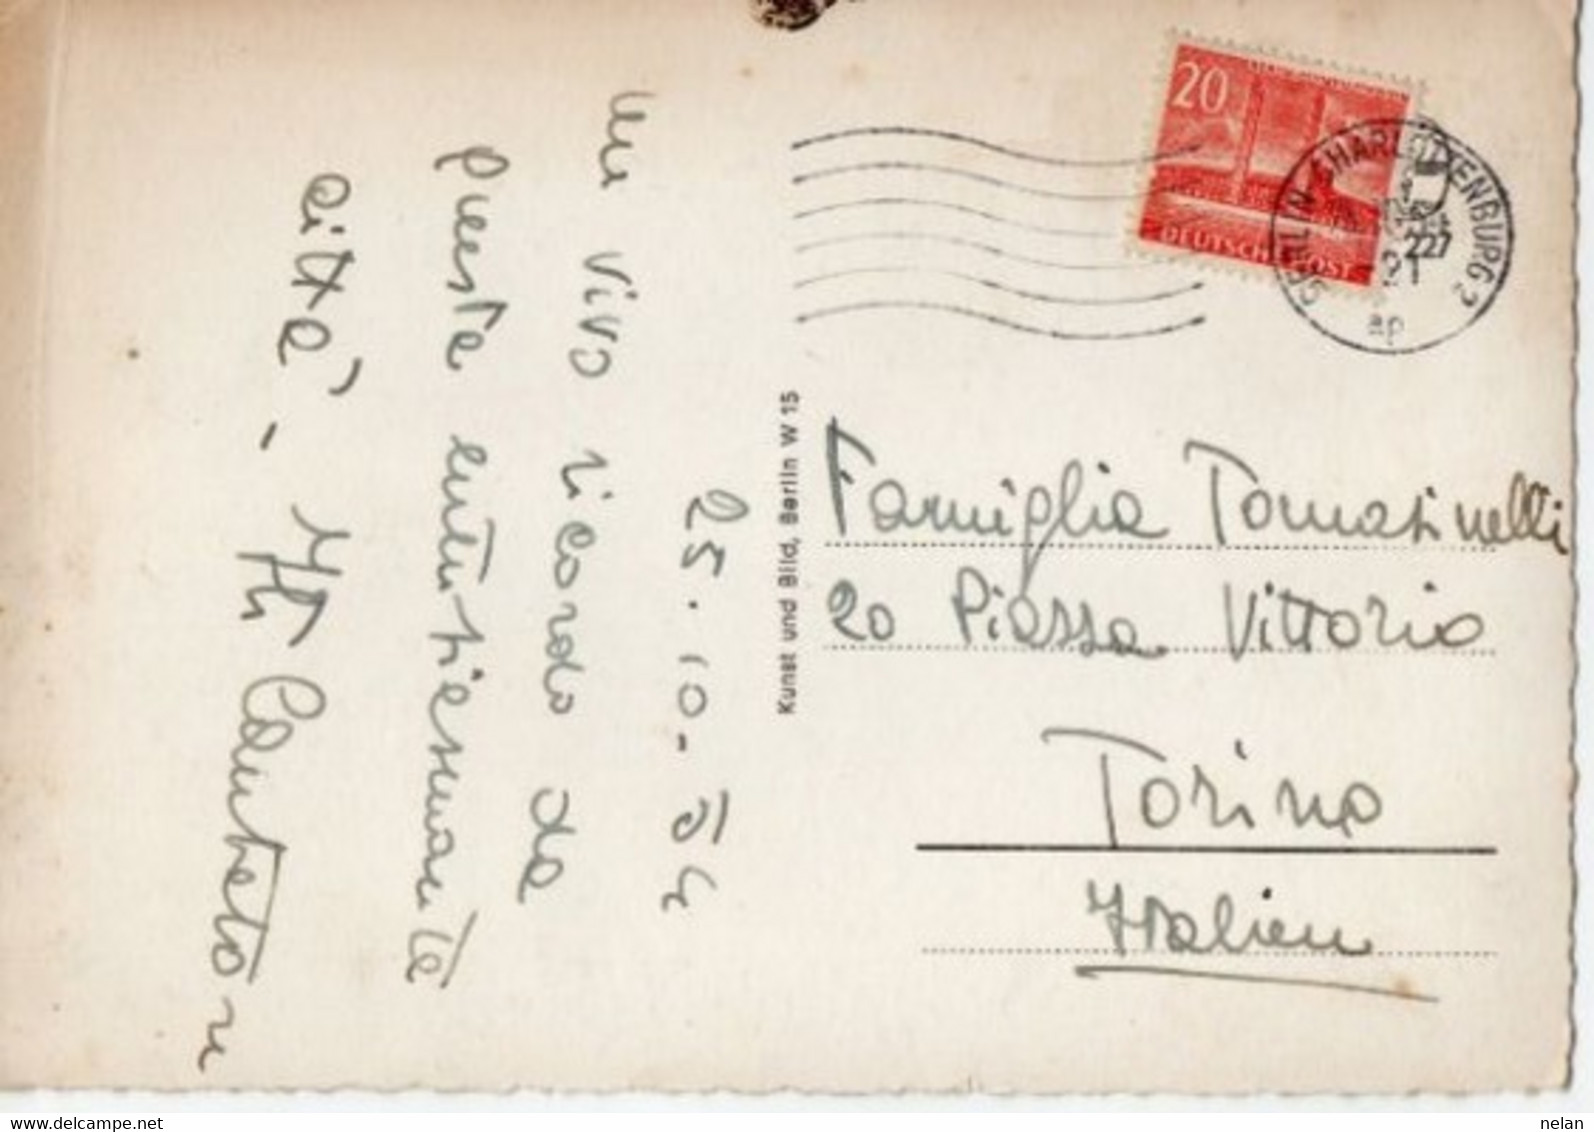 25.10.-54
un vivo ricordo da
questa entusiasmante
città,-
20
DEUTSCHE POST
BERLIN-CHARLOTTENBURG 2
227
Kunst und Bild, Berlin W 15
Famiglia Tomasinelli
20 Piazza Vittorio
Torino
Italien
www.delcampe.net
nelan